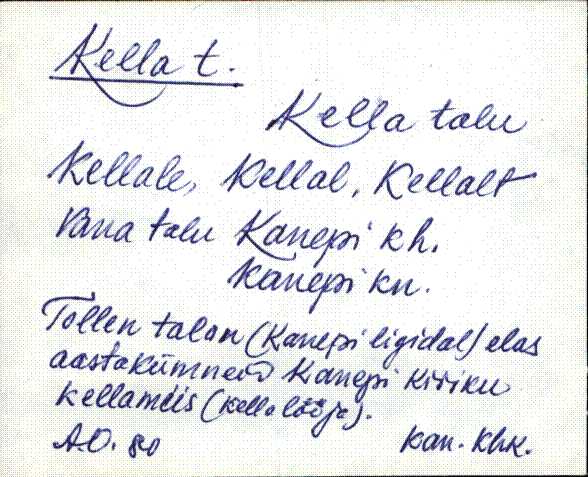 Kella t.
Kella talu
Kellale, Kellal, Kellalt
Vana talu Kanepi kh.
Kanepi kn.
Tollen talon (Kanepi ligidal) elas
aastakümneid Kanepi kiriku
kellamiis (kellalööja).
A.O. 80
Kan. khk.